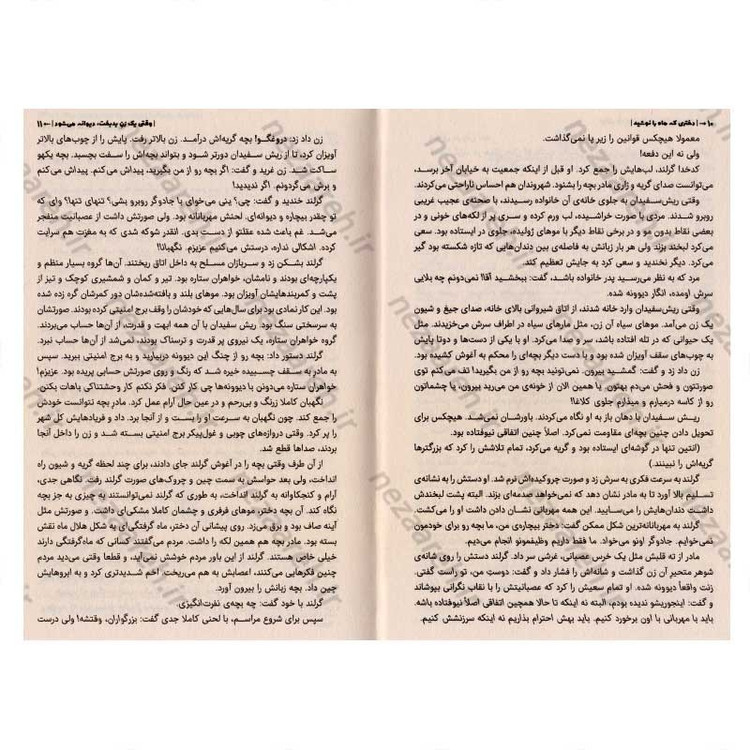 ۱۰ ← | دختری که ماه را نوشید |
معمولا هیچکس قوانین را زیر پا نمی‌گذاشت.
ولی نه این دفعه!
کدخدا گرلند، لب‌هایش را جمع کرد. او قبل از اینکه جمعیت به خیابان آخر برسد،
می‌توانست صدای گریه و زاری مادر بچه را بشنود. شهروندان هم احساس ناراحتی می‌کردند.
وقتی ریش‌سفیدان به جلوی خانه‌ی آن خانواده رسیدند، با صحنه‌ی عجیب غریبی
روبرو شدند. مردی با صورت خراشیده، لب ورم کرده و سری پر از لکه‌های خونی و در
بعضی نقاط بدون مو و در برخی نقاط دیگر با موهای ژولیده، جلوی در ایستاده بود. سعی
می‌کرد لبخند بزند ولی هر بار زبانش به فاصله‌ی بین دندان‌هایی که تازه شکسته بود گیر
می‌کرد. دیگر نخندید و سعی کرد به جایش تعظیم کند.
مرد که به نظر می‌رسید پدر خانواده باشد، گفت: ببخشید آقا! نمی‌دونم چه بلایی
سرش اومده، انگار دیوونه شده.
وقتی ریش‌سفیدان وارد خانه شدند، از اتاق شیروانی بالای خانه، صدای جیغ و شیون
یک زن می‌آمد. موهای سیاه آن زن، مثل مارهای سیاه در اطراف سرش می‌خزیدند. مثل
یک حیوانی که در تله افتاده باشد، سر و صدا می‌کرد. او با یکی از دست‌ها و دوتا پایش
به چوب‌های سقف آویزان شده بود و با دست دیگر بچه‌ای را محکم به آغوش کشیده بود.
زن داد زد و گفت: گمشید بیرون. نمی‌تونید بچه رو از من بگیرید! تف می‌کنم توی
صورتتون و فحش می‌دم بهتون. یا همین الان از خونه‌ی من می‌رید بیرون، یا چشماتون
رو از کاسه درمیارم و میذارم جلوی کلاغا!
ریش سفیدان با دهان باز به او نگاه می‌کردند. باورشان نمی‌شد. هیچکس برای
تحویل دادن چنین بچه‌ای مقاومت نمی‌کرد. اصلاً چنین اتفاقی نیوفتاده بود.
(انتین تنها در گوشه‌ای ایستاده بود و گریه می‌کرد، تمام تلاشش را کرد که بزرگترها
گریه‌اش را نبینند.)
گرلند به سرعت فکری به سرش زد و صورت چروکیده‌اش نرم شد. او دستش را به نشانه‌ی
تسلیم بالا آورد تا به مادر نشان دهد که نمی‌خواهد صدمه‌ای بزند. البته پشت لبخندش
داشت دندان‌هایش را می‌سایید. این همه مهربانی نشان دادن داشت او را می‌کشت.
گرلند به مهربانانه‌ترین شکل ممکن گفت: دختر بیچاره‌ی من، ما بچه رو برای خودمون
نمی‌خوایم. جادوگر اونو می‌خواد. ما فقط داریم وظیفمونو انجام می‌دیم.
مادر از ته قلبش مثل یک خرس عصبانی، غرشی سر داد. گرلند دستش را روی شانه‌ی
شوهر متحیر آن زن گذاشت و شانه‌اش را فشار داد و گفت: دوستِ من، تو راست گفتی.
زنت واقعاً دیوونه شده. او تمام سعیش را کرد که عصبانیتش را با نقاب نگرانی بپوشاند
و گفت: اینجوریشو ندیده بودم، البته نه اینکه تا حالا همچین اتفاقی اصلاً نیوفتاده باشه.
باید با مهربانی با اون برخورد کنیم. باید بهش احترام بذاریم نه اینکه سرزنشش کنیم.
| وقتی یک زن بدبخت، دیوانه می‌شود | ← ۱۱
زن داد زد: دروغگو! بچه گریه‌اش درآمد. زن بالاتر رفت. پایش را از چوب‌های بالاتر
آویزان کرد، تا از ریش سفیدان دورتر شود و بتواند بچه‌اش را سفت بچسبد. بچه یکهو
ساکت شد. زن غرید و گفت: اگر بچه رو از من بگیرید، پیداش می‌کنم. پیداش می‌کنم
و برش می‌گردونم. اگر ندیدید!
گرلند خندید و گفت: چی؟ پنی می‌خوای با جادوگر روبرو بشی؟ تنهای تنها؟ وای که
تو چقدر بیچاره و دیوانه‌ای. لحنش مهربانانه بود. ولی صورتش داشت از عصبانیت منفجر
می‌شد. غم باعث شده عقلتو از دست بدی. انقدر شوکه شدی که به مغزت هم سرایت
کرده. اشکالی نداره، درستش می‌کنیم عزیزم. نگهبانا!!
گرلند بشکن زد و سربازان مسلح به داخل اتاق ریختند. آن‌ها گروه بسیار منظم و
یکپارچه‌ای بودند و نامشان، خواهران ستاره بود. تیر و کمان و شمشیری کوچک و تیز از
پشت و کمربندهایشان آویزان بود. موهای بلند و بافته‌شده‌شان دور کمرشان گره زده شده
بود. این کار نمادی بود برای سال‌هایی که خودشان را وقف برج امنیتی کرده بودند. صورتشان
به سرسختی سنگ بود. ریش سفیدان با آن همه ابهت و قدرت، از آن‌ها حساب می‌بردند.
گروه خواهران ستاره، یک نیروی پر قدرت و ترسناک بودند، نمی‌شد از آن‌ها حساب نبرد.
گرلند دستور داد: بچه رو از چنگ این دیوونه دربیارید و به برج امنیتی ببرید. سپس
به مادرِ به سقف چسبیده خیره شد که رنگ و روی صورتش حسابی پریده بود. عزیزم!
خواهران ستاره می‌دونن با دیوونه‌ها چی کار کنن. فکر نکنم کار وحشتناکی باهات بکنن
نگهبان کاملا زرنگ و بی‌رحم و در عین حال آرام عمل کرد. مادر بچه نتوانست خودش
را جمع کند. چون نگهبان به سرعت او را بست و از آنجا برد. داد و فریادهایش کل شهر
را پر کرد. وقتی دروازه‌های چوبی و غول‌پیکر برج امنیتی بسته شد و زن را داخل آنجا
بردند، صداها قطع شد.
از آن طرف وقتی بچه را در آغوش گرلند جای دادند، برای چند لحظه گریه و شیون راه
انداخت، ولی بعد حواسش به سمت چین و چروک‌های صورت گرلند رفت. نگاهی جدی،
آرام و کنجکاوانه به گرلند انداخت، به طوری که گرلند نمی‌توانستند به چیزی به جز بچه
نگاه کند. آن بچه دختر، موهای فرفری و چشمان کاملا مشکی‌ای داشت. و صورتش مثل
آینه صاف بود و برق می‌زد. روی پیشانی آن دختر، ماه گرفتگی‌ای به شکل هلال ماه نقش
بسته بود. مادر بچه هم همین لکه را داشت. مردم می‌گفتند کسانی که ماه‌گرفتگی دارند
خیلی خاص هستند. گرلند از این باور مردم خوشش نمی‌آید، و قطعا وقتی می‌دید مردم
چنین فکرهایی می‌کنند، اعصابش به هم می‌ریخت. اخم شدیدتری کرد و به ابروهایش
چین داد. بچه زبانش را بیرون آورد.
گرلند با خود گفت: چه بچه‌ی نفرت‌انگیزی.
سپس برای شروع مراسم، با لحنی کاملا جدی گفت: بزرگواران، وقتشه! ولی درست
nezaareh.ir